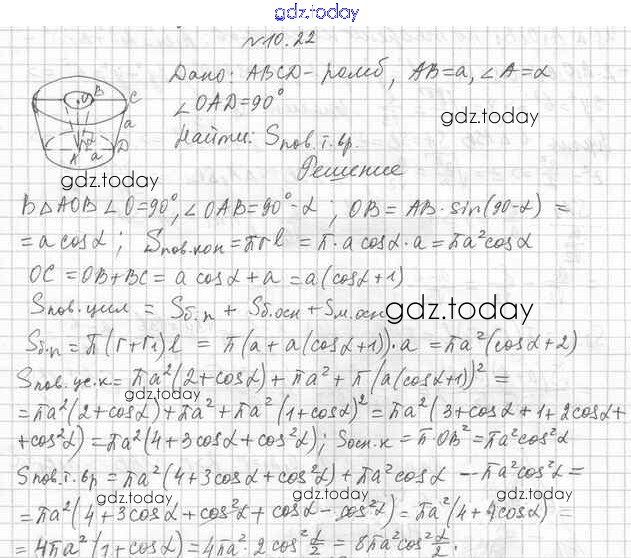 gdz.today
№10.22
Дано: ABCD - ромб, AB=a, ∠A=α
∠OAD=90°
gdz.today
Найти: Sпов.т.вр.
O B C a A a D α
gdz.today
Решение
В △AOB ∠O=90°, ∠OAB=90°-α; OB = AB·sin(90-α) =
= a cosα; Sпов.кон = πrl = π·a cosα·a = πa²cosα
OC = OB+BC = a cosα + a = a(cosα+1)
Sпов.цил = Sб.п + Sб.осн + Sм.осн
gdz.today
Sб.п = π(r+r₁)l = π(a+a(cosα+1))·a = πa²(cosα+2)
Sпов.ус.к = πa²(2+cosα) + πa² + π(a(cosα+1))² =
gdz.today
= πa²(2+cosα) + πa² + πa²(1+cosα)² = πa²(3+cosα+1+2cosα+
+cos²α) = πa²(4+3cosα+cos²α); Sосн.к = π·OB² = πa²cos²α
Sпов.т.вр = πa²(4+3cosα+cos²α) + πa²cosα - πa²cos²α =
gdz.today
gdz.today
= πa²(4+3cosα+cos²α+cosα-cos²α) = πa²(4+4cosα) =
= 4πa²(1+cosα) = 4πa²·2cos²α/2 = 8πa²cos²α/2.